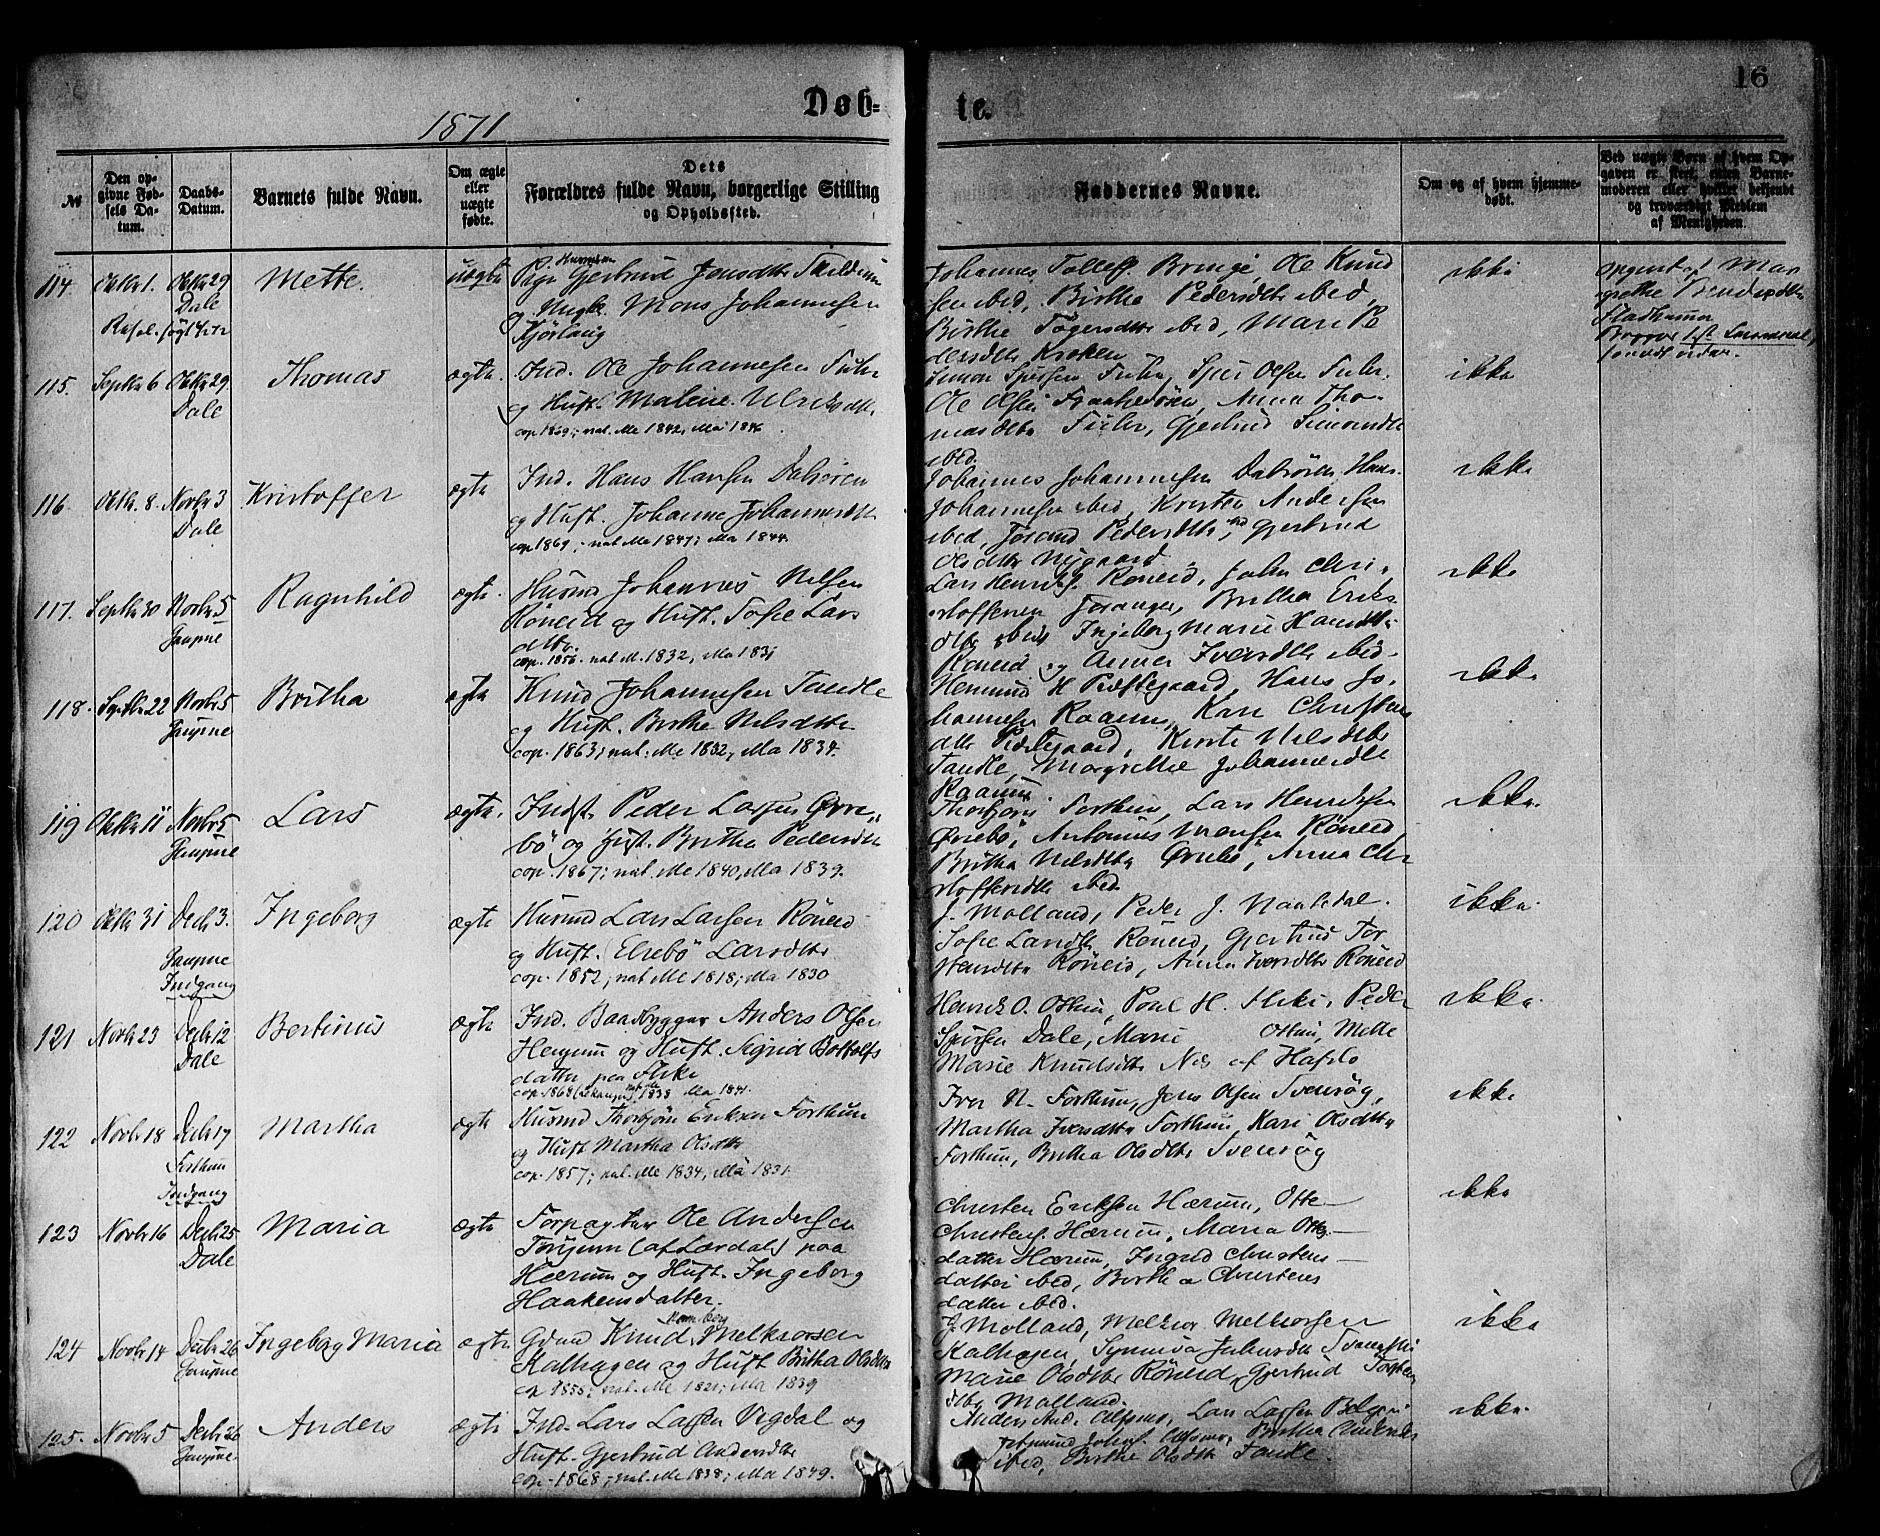 16
Døb-
te.
1871
№
Den op-
givne Fød-
sels Da-
tum.
Daabs-
Datum.
Barnets fulde Navn.
Om ægte
eller
uægte
fødte.
Dets
Forældres fulde Navn, borgerlige Stilling
og Opholdssted.
Faddernes Navne.
Om og af hvem hjemme-
døbt.
Ved uægte Børn af hvem Op-
gaven er skeet, enten Barne-
moderen eller hvilket bekjendt
og troværdigt Medlem
af Menigheden.
114 Oktbr 1. Oktbr 29 Dale
Mette.
uægte
Pige Gjertrud Jonsdtr
og Ungk. Mons Johannesen
Kjørlaug
Johannes Tollefs. Bringe, Ole Knud
sen ibid, Birthe Pedersdtr ibid,
Birthe Tøgersdtr ibid, Mari Pe
dersdtr Kroken
ikke
115. Septbr 6 Oktbr 29. Dale
Thomas
ægte.
Ind. Ole Johannesen Fuhr
og Hust. Malene Ulriksdtr
cop. 1869; nat. Me 1842, Ma 1846
Simon Sjursen Fuhr, Sjur Olsen Fuhr.
Ole Olsen, Anna Tho-
masdtr Fuhr, Gjertrud Simonsdtr
ibid.
ikke
116. Oktbr. 8. Novbr 3 Dale
Kristoffer
ægte
Ind. Hans Hansen Dalsøren
og Hust. Johanne Johannesdtr
cop. 1869; nat. Me 1847; Ma 1844.
Johannes Johannesen Dalsøren, Hans
Johannesen ibid, Kristen Andersen
ibid, Pedersdtr ibid, Gjertrud
Olsdtr Nygaard.
ikke
117. Septbr 30 Novbr 5 Gaupne
Ragnhild
ægte.
Husmd Johannes Nilsen
Røneid og Hust. Sofie Lars
dtr.
cop. 1856. nat. M. 1832, Ma 1831
Lars Henriks. Røneid, John Chri-
stoffersen, Britha Eriks
dtr ibid Ingeborg Marie Hansdtr
Røneid og Anna Iversdtr ibid.
ikke
118. Septbr 22 Novbr 5 Gaupne
Britha
ægte
Knud Johannesen Tandle
og Hust. Birthe Nilsdtr
cop. 1863; nat. Me 1832, Ma 1834.
H Prestegaard, Hans Jo-
hannesen Raaum, Kari Christens
dtr Prestegaard, Kirsti Nilsdtr
Tandle, Margrethe Johannesdtr
Raaum.
ikke
119 Oktbr 11 Novbr 5 Gaupne
Lars
ægte.
Indst. Peder Larsen Ørre-
bø og Hust. Britha Pedersdtr
cop. 1867; nat. Me 1840, Ma 1839.
Thorbjørn Forthun, Lars Henriksen
Ørrebø, Antonius Monsen Røneid,
Britha Nilsdtr Ørrebø, Anna Chri
stoffersdtr ibid
ikke.
120 Oktbr 31 Decbr 3. Gaupne
Indgang
Ingeborg
ægte
Husmd Lars Larsen Røneid
og Hust. Elsebø Larsdtr
cop. 1852; nat. Me 1818; Ma 1830
J. Molland, Peder J. Naaledal.
Sofie Larsdtr Røneid, Gjertrud Tor
stensdtr Røneid, Anna Iversdtr Røneid
ikke.
121 Novbr 23 Decbr 12 Dale
Bertinus
ægte
Ind. Baadbygger Anders Olsen
Heggum og Hust. Sigrid Botolfs
datter paa Flike
Henrik O. Ottum, Poul H. Flike, Peder
Sjursen Dale, Marie Ottum, Mette
Marie Knudsdtr Nes af Hafslo
ikke.
122 Novbr 18 Decbr 17 Forthun
Indgang
Martha
ægte
Husmd Thorbjørn Eriksen Forthun
og Hust Martha Olsdtr
cop. 1857; nat. Me 1834, Ma 1831.
Iver N. Forthun, Jens Olsen Svensøg,
Martha Iversdtr Forthun, Kari Olsdtr
Forthun, Britha Olsdtr Svensøg
ikke
123 Novbr 16 Decbr 25 Dale
Maria
ægte
Forpagter Ole Andersen
Tønjum (af Lærdal) paa
Hærum og Hust. Ingeborg
Haakensdatter.
Christen Eriksen Hærum, Otte
Christens. Hærum, Maria Otte-
datter Hærum, Ingrid Christens-
datter ibid, Birtha Christens
datter ibid.
ikke
124 Novbr 14 Decbr 26 Gaupne
Ingeborg Maria
ægte.
Gmd Knud Melkiorsen
Kalhagen og Hust Britha Olsdtr
cop 1855; nat. Me 1821; Ma 1839
J Molland, Melkior Melkiorsen
Kalhagen, Synneva
Marie Olsdtr Røneid, Gjertrud Torsten
dtr Molland.
ikke
125. Novbr 5 Decbr 26 Gaupne
Anders
ægte
Ind. Lars Larsen Vigdal og
Hust. Gjertrud Andersdtr
cop. 1868; nat. Me 1838; Ma 1849.
Anders And., Lars Larsen
Britha Andersdtr
ibid, Birthe Olsdtr Tandle.
ikke.